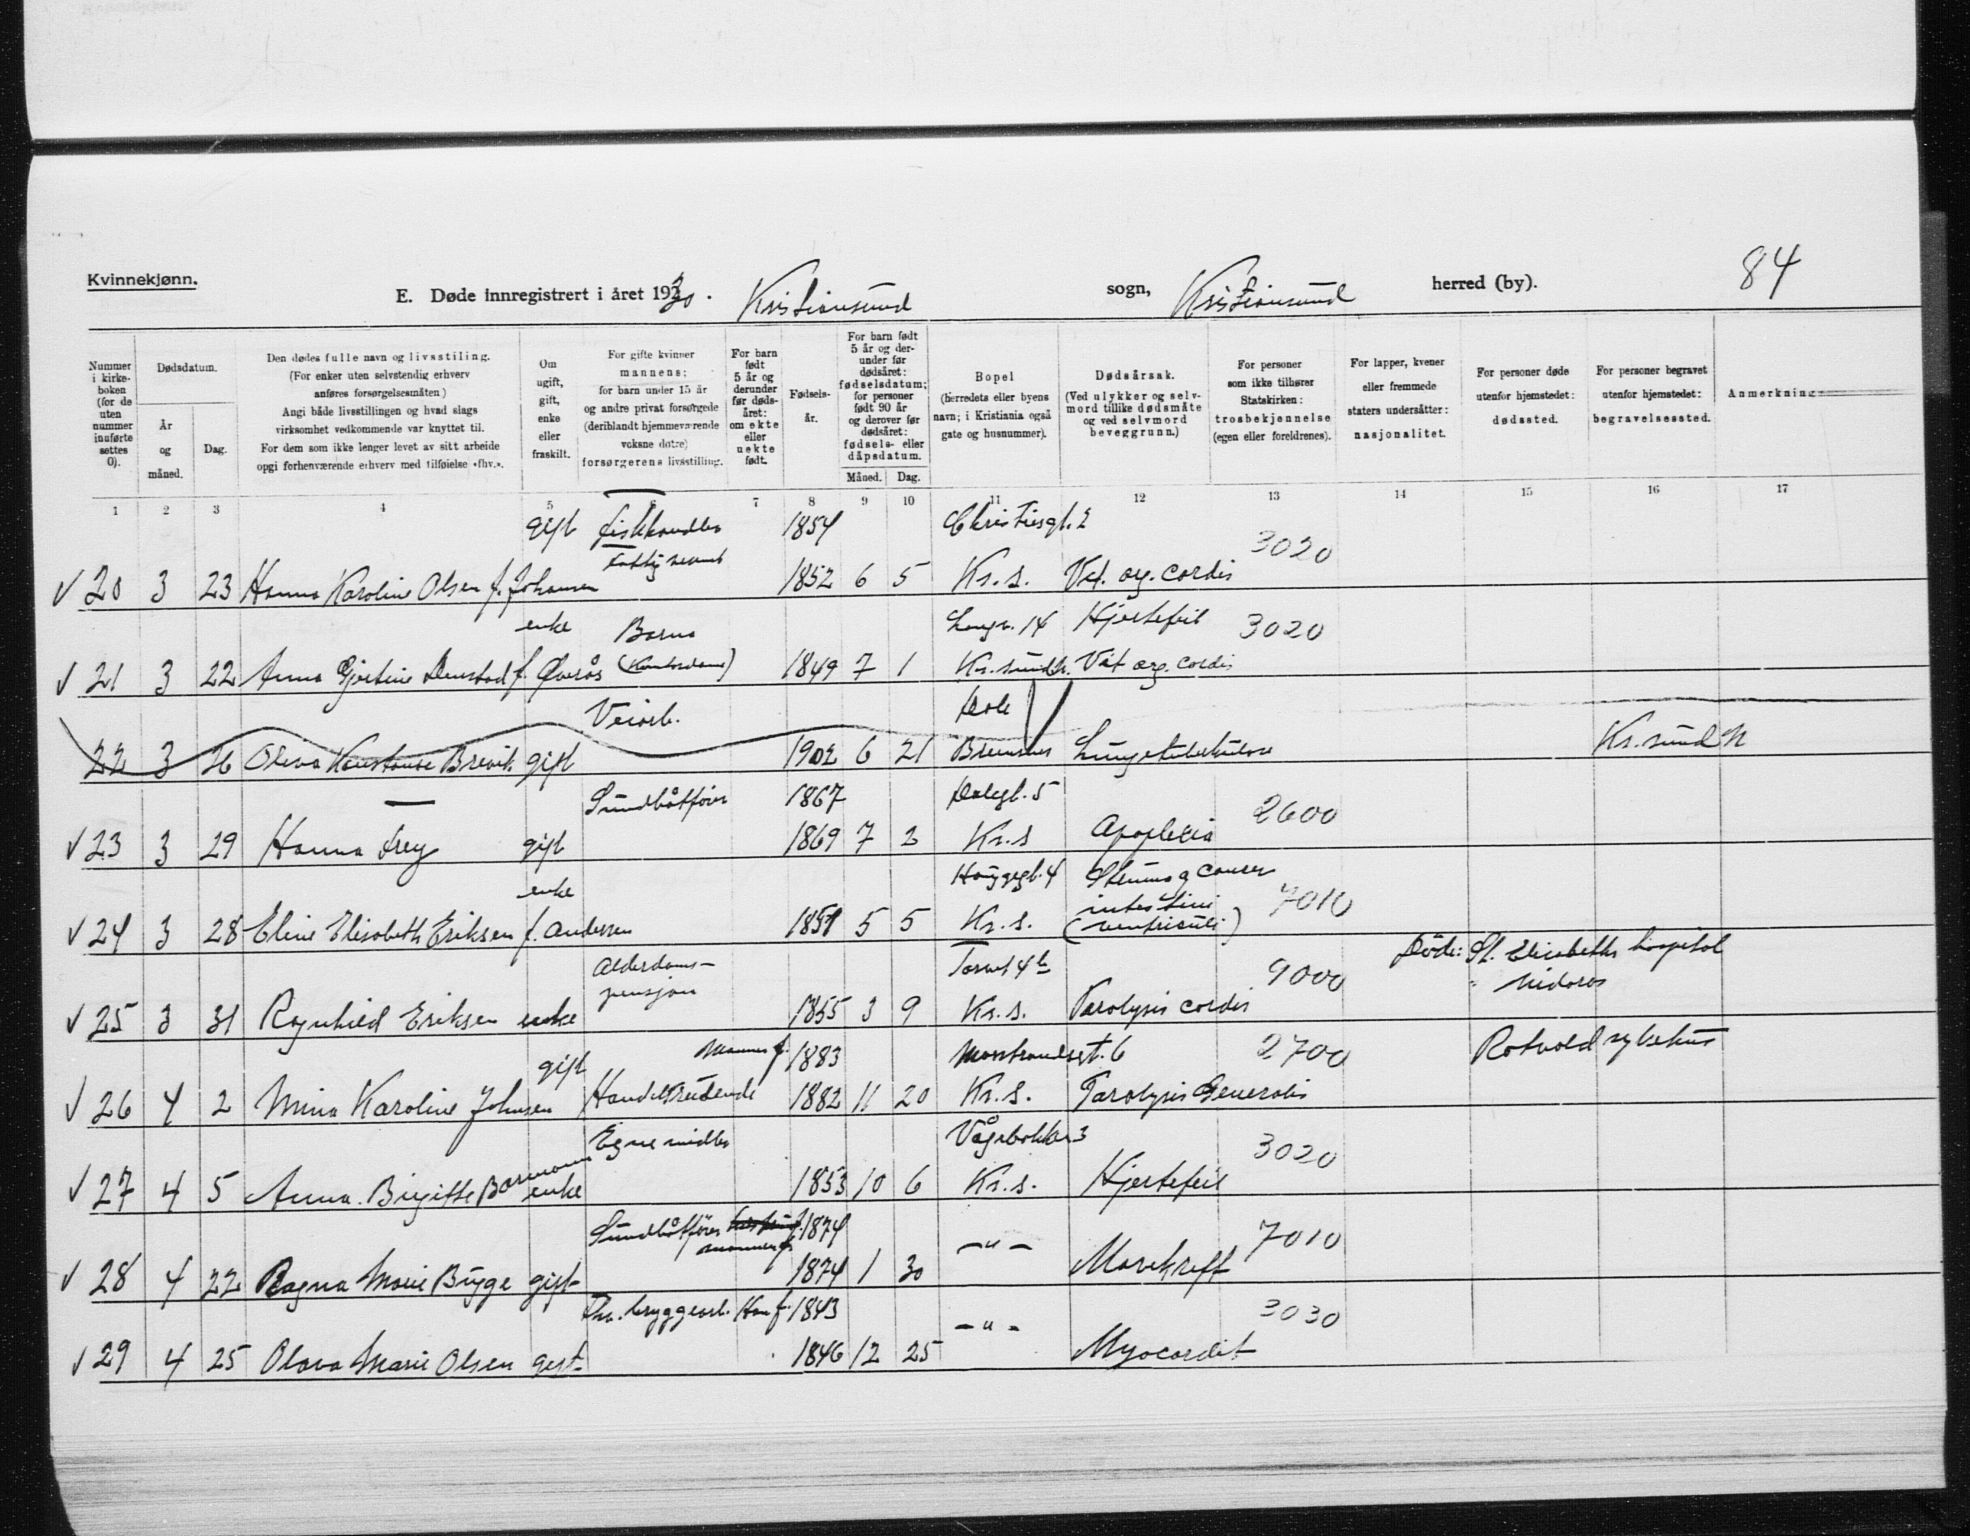 Kvinnekjønn.
84
E. Døde innregistrert i året 1930. Kristiansund sogn, Kristiansund herred (by).
Nummer i kirkeboken (for de uten nummer innførte settes 0).
Dødsdatum.
År og måned.
Dag.
Den dødes fulle navn og livsstiling.
(For enker uten selvstendig erhverv anføres forsørgelsesmåten)
Angi både livsstillingen og hvad slags virksomhet vedkommende var knyttet til.
For dem som ikke lenger levet av sitt arbeide opgi forhenværende erhverv med tilføielse «fhv.».
Om ugift, gift, enke eller fraskilt.
For gifte kvinner mannens; for barn under 15 år og andre privat forsørgede (deriblandt hjemmeværende voksne døtre) forsørgerens livsstilling.
For barn født 5 år og derunder før dødsåret: om ekte eller uekte født.
Fødselsår.
For barn født 5 år og derunder før dødsåret: fødselsdatum; for personer født 90 år og derover før dødsåret: fødsels- eller dåpsdatum.
Måned. Dag.
Bopel (herredets eller byens navn; i Kristiania også gate og husnummer).
Dødsårsak.
(Ved ulykker og selvmord tillike dødsmåte og ved selvmord beveggrunn.)
For personer som ikke tilhører Statskirken: trosbekjennelse (egen eller foreldrenes).
For lapper, kvener eller fremmede staters undersåtter: nasjonalitet.
For personer døde utenfor hjemstedet: dødssted.
For personer begravet utenfor hjemstedet: begravelsessted.
Anmerkning
1 2 3 4 5 6 7 8 9 10 11 12 13 14 15 16 17
gift fiskhandler 1854 Christiesgt. 2 3020
√ 20 3 23 Hanna Karoline Olsen f. Johansen 1852 6 5 Kr. s. Vit. org. cordis
enke Barna Langv. 14 Hjertefeil 3020
√ 21 3 22 Anna Gjertine Denstad f. Øverås (Kontordame) 1849 7 1 Kr. sund N. Vit org. cordis
Veiarb. Dale
22 3 26 Oleva Konstanse Brevik gift 1902 6 21 Bremsnes Lungetuberkulose Kr. sund N
Sundbåtfører 1867 Dalegt. 5 2600
√ 23 3 29 Hanna Frey gift 1869 7 2 Kr. s Apoplexia
enke Hauggegt. 4 Struma q cancer
√ 24 3 28 Eline Elisabeth Eriksen f. Andersen 1851 5 5 Kr. s. intestini (ventriculi) 7010
Alderdoms-pensjon Torvet 4 b 9000 Døde: St. Elisabeths hospital
√ 25 3 31 Ragnhild Eriksen enke 1855 3 9 Kr. s. Paralysis cordis Nidaros
gift Mannen f. 1883 Morstrandsgt. 6 2700 Rotvold sykehus
√ 26 4 2 Mina Karoline Johnsen Handelsreisende 1882 11 20 Kr. s. Paralysis Generalis
Egne midler Vågebakken 3 3020
√ 27 4 5 Anna Birgitte Bormann enke 1853 10 6 Kr. s. Hjertefeil
Sundbåtfører mannen f. 1874 7010
√ 28 4 22 Ragna Marie Brygge gift 1874 1 30 – " – Mavekreft
bryggearb. Han f. 1843 3030
√ 29 4 25 Olava Marie Olsen gift 1846 12 25 – " – Myocardit